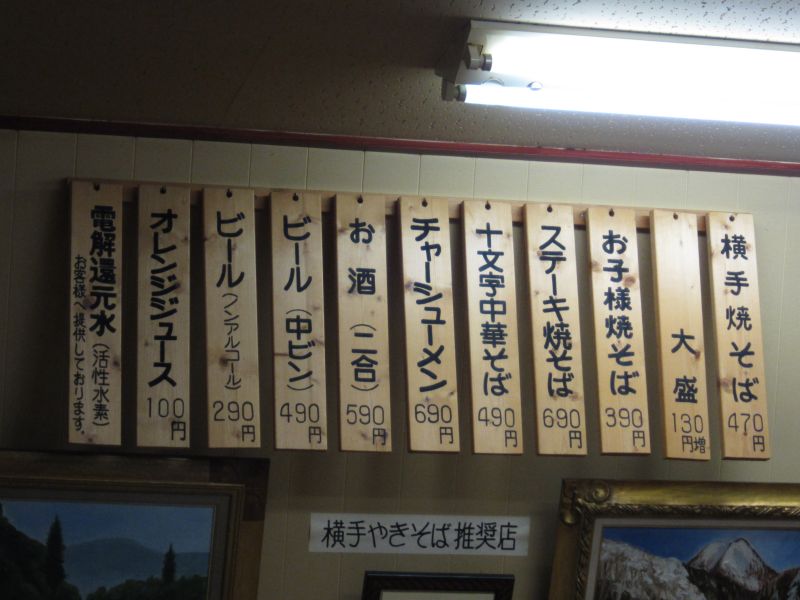 横手焼そば
470円
大盛
130円増
お子様焼そば
390円
ステーキ焼そば
690円
十文字中華そば
490円
チャーシューメン
690円
お酒(二合)
590円
ビール(中ビン)
490円
ビール(ノンアルコール)
290円
オレンジジュース
100円
電解還元水(活性水素)
お客様へ提供しております。
横手やきそば推奨店